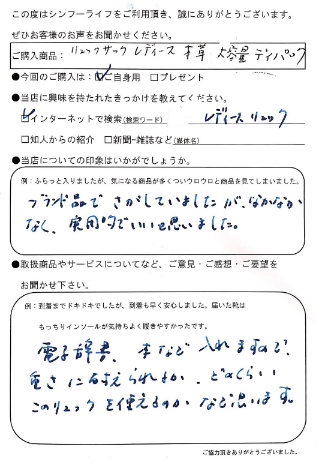 この度はシンフーライフをご利用頂き、誠にありがとうございます。
ぜひお客様のお声をお聞かせください。
ご購入商品: リュックサック レディース 本革 大容量 デイパック
●今回のご購入は: ☑ご自身用 □プレゼント
●当店に興味を持たれたきっかけを教えてください。
☑インターネットで検索(検索ワード) レディース リュック
□知人からの紹介 □新聞・雑誌など(媒体名)
●当店についての印象はいかがでしょうか。
例: ふらっと入りましたが、気になる商品が多くついウロウロと商品を見てしまいました。
ブランド品でさがしていましたが、なかなか
なく、実用的でいいと思いました。
●取扱商品やサービスについてなど、ご意見・ご感想・ご要望を
お聞かせ下さい。
例: 到着までドキドキでしたが、到着も早く安心しました。届いた靴は
もっちりインソールが気持ちよく履きやすかったです。
電子辞書、本など入れますので、
重さに耐えられるか、どのくらい
このリュックを使えるのかなど思います。
ご協力頂きありがとうございました。